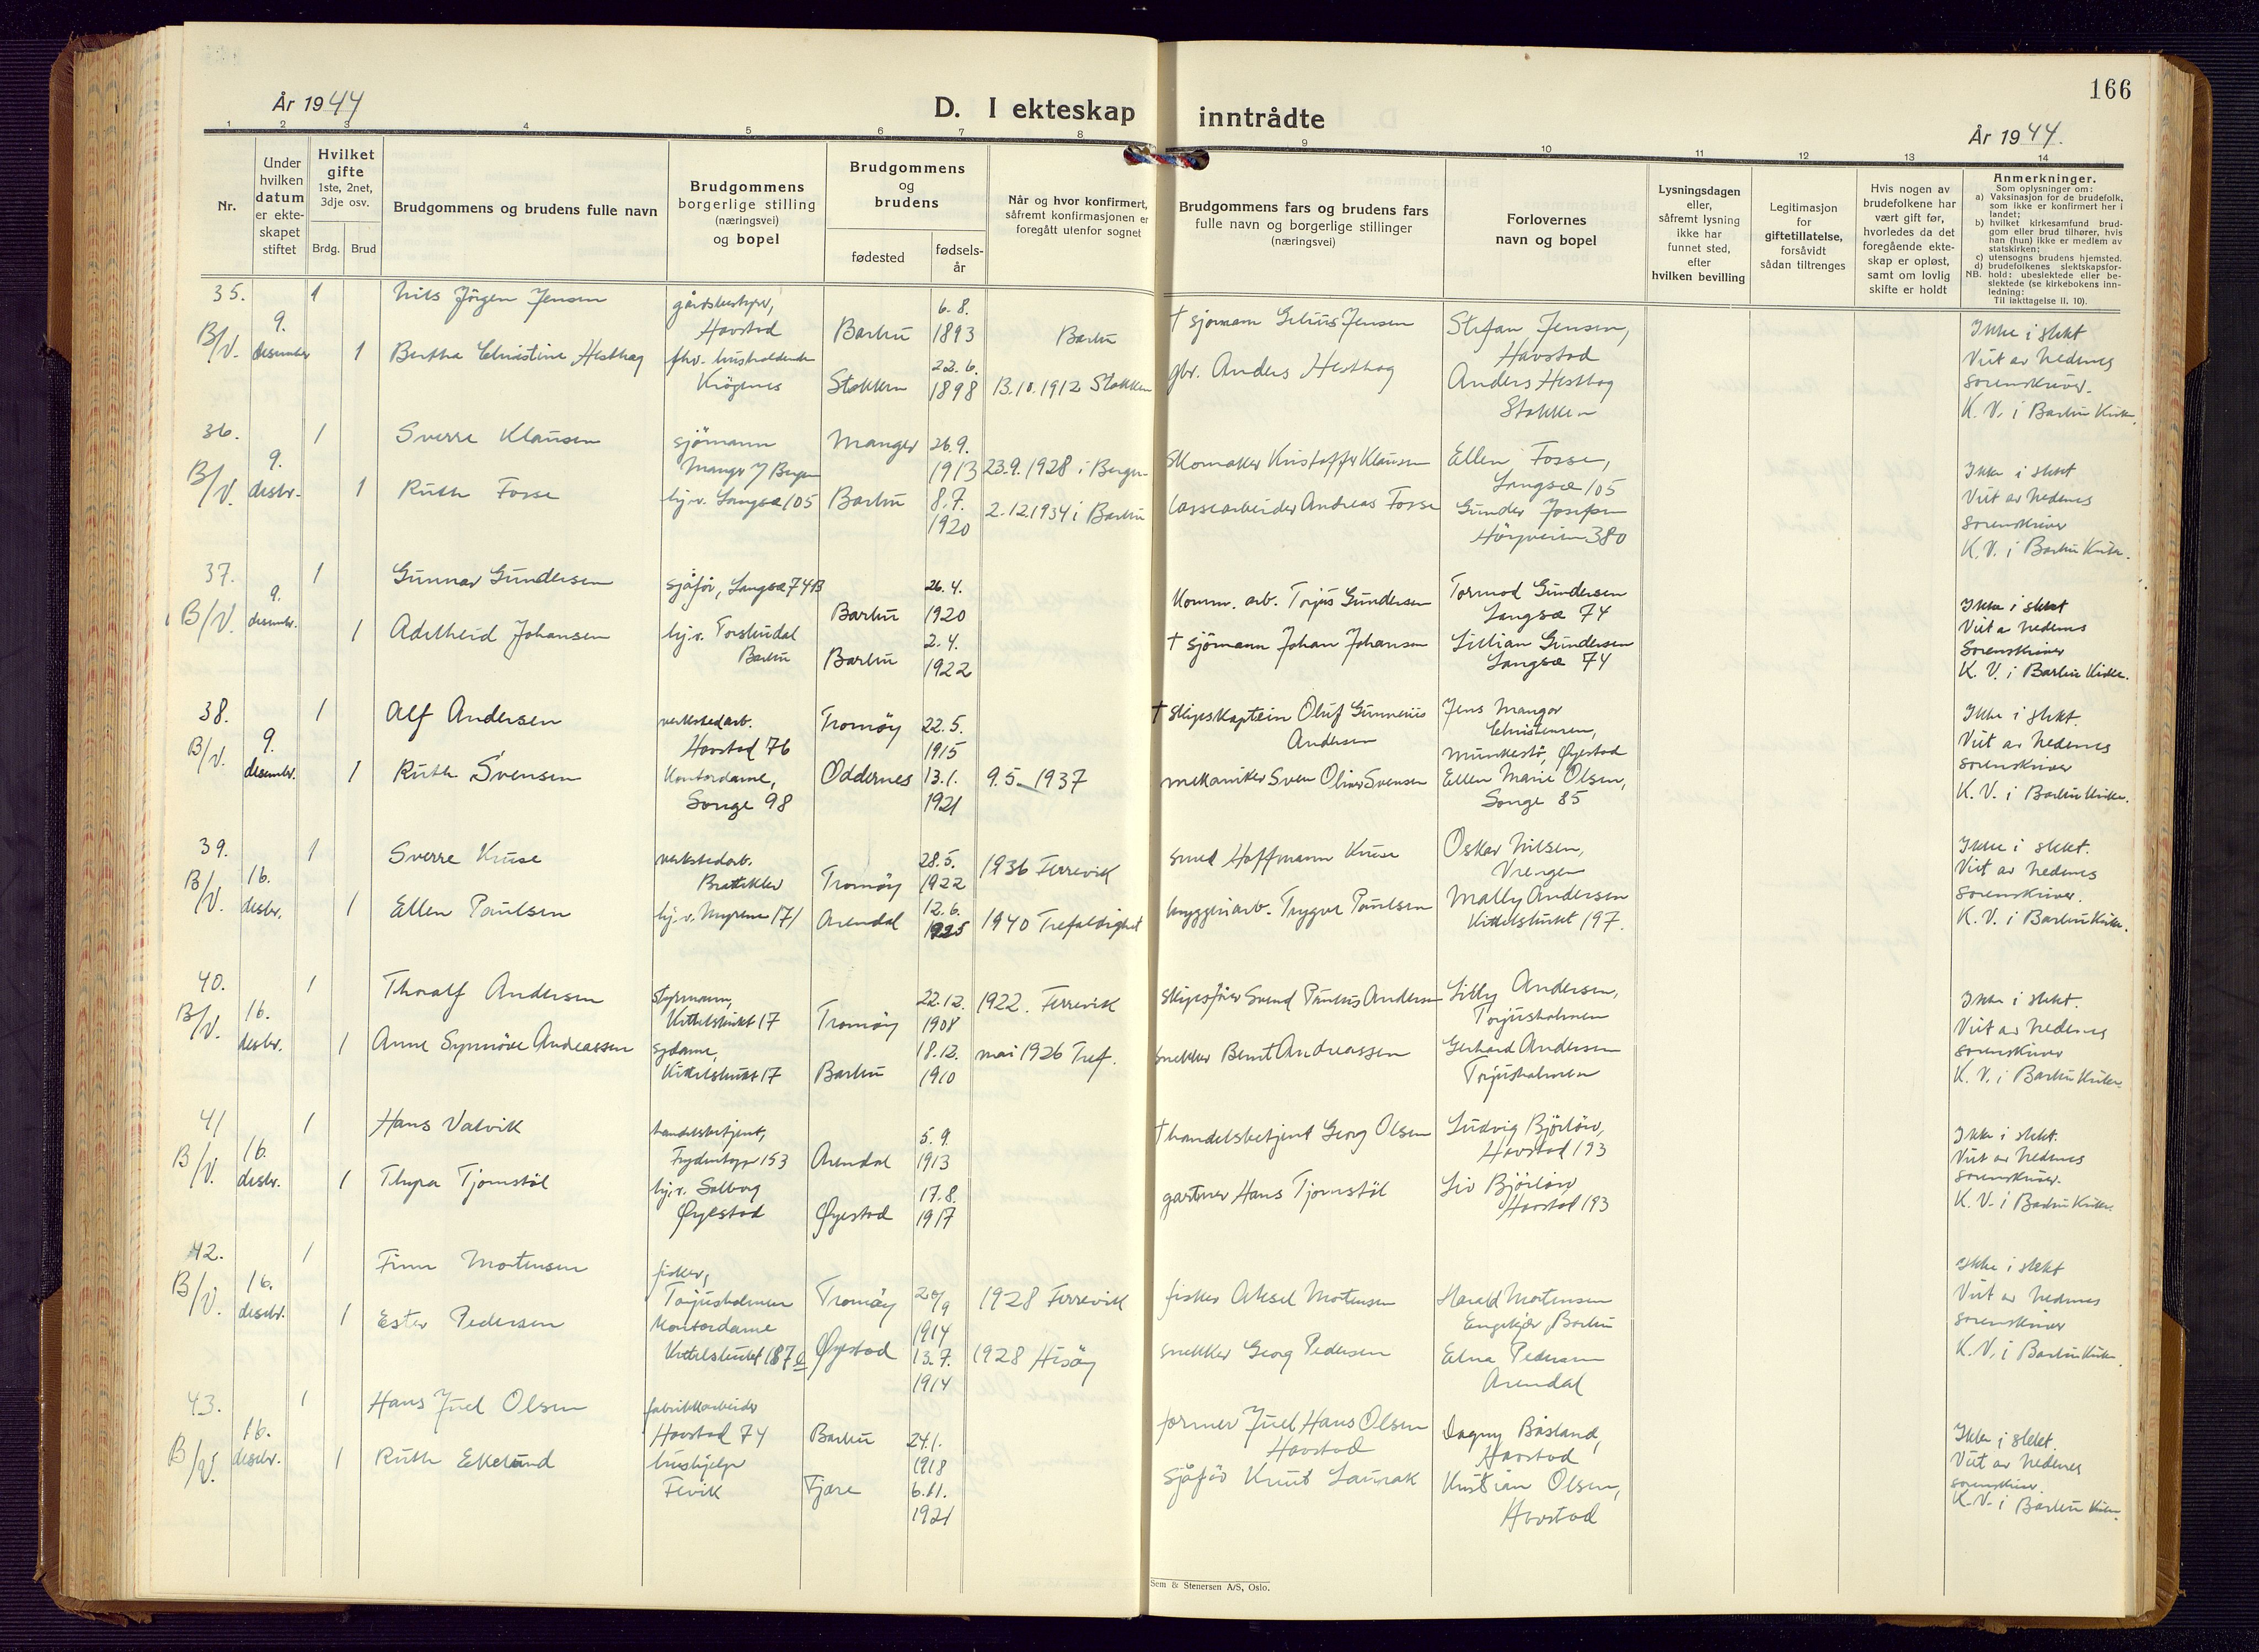 166
År 1944
År 1944.
D. I ekteskap inntrådte
1 2 3 4 5 6 7 8 9 10 11 12 13 14
Nr.
Under
hvilken
datum
er ekte-
skapet
stiftet
Hvilket
gifte
1ste, 2net,
3dje osv.
Brdg. Brud
Brudgommens og brudens fulle navn
Brudgommens
borgerlige stilling
(næringsvei)
og bopel
Brudgommens
og
brudens
fødested
fødsels-
år
Når og hvor konfirmert,
såfremt konfirmasjonen er
foregått utenfor sognet
Brudgommens fars og brudens fars
fulle navn og borgerlige stillinger
(næringsvei)
Forlovernes
navn og bopel
Lysningsdagen
eller,
såfremt lysning
ikke har
funnet sted,
efter
hvilken bevilling
Legitimasjon
for
giftetillatelse,
forsåvidt
sådan tiltrenges
Hvis nogen av
brudefolkene har
vært gift før,
hvorledes da det
foregående ekte-
skap er opløst,
samt om lovlig
skifte er holdt
Anmerkninger.
Som oplysninger om:
a) Vaksinasjon for de brudefolk,
som ikke er konfirmert her i
landet;
b) hvilket kirkesamfund brud-
gom eller brud tilhører, hvis
han (hun) ikke er medlem av
statskirken;
c) utensogns brudens hjemsted.
d) brudefolkenes slektskapsfor-
NB. hold: ubeslektede eller be-
slektede (se kirkebokens inn-
ledning:
Til iakttagelse II. 10).
35. 1 Nils Jörgen Jensen
Havstad Barbu 6.8. 1893 Barbu
† sjömann Jensen
Stefan Jensen,
Havstad
B/V. 9. desember 1 Bertha Christine Hesthag
Krögenes Stokken 22.6. 1898 13.10.1912 Stokken
gbr. Anders Hesthag
Anders Hesthag
Stokken
Ikke i slekt
Viet av Nedenes
sorenskriver.
K. V. i Barbu Kirke.
36. 1 Sverre Klausen
sjömann
Manger 26.9. 1913 23.9.1928 i Bergen
Skomaker Kristoffer Klausen
Ellen Fosse,
Langsæ 105
B/V. 9. desbr. 1 Ruth Fosse
hj.v. Langsæ 105 Barbu 8.7. 1920 2.12.1934 i Barbu
lossearbeider Andreas Fosse
Gunder Josefsen
380
Ikke i slekt
Viet av Nedenes
sorenskriver
K. V. i Barbu Kirke.
37. 1 Gunnar Gundersen
sjåfør, Langsæ 74B Barbu 26.4. 1920
Komm. arb. Torjus Gundersen
Tormod Gundersen
Langsæ 74
B/V. 9. desembr. 1 Adelheid Johansen
hj.v. Torsbudal
Barbu Barbu 2.4. 1922
† sjömann Johan Johansen
Lillian Gundersen
Langsæ 74
Ikke i slekt
Viet a Nedenes
Sorenskriver
K. V. i Barbu Kirke.
38. 1 Alf Andersen
verkstedarb.
Havstad 76 Tromöy 22.5. 1915
† Skipskaptein Oluf Gunnerius
Andersen
Jens Mangor
Christensen,
Øyestad
B/V. 9. desembr. 1 Ruth Svensen
Kontordame,
Songe 98 Oddernes 13.1. 1921 9.5. 1937
mekaniker Sven Oliver Svensen
Ellen Marie Olsen,
Songe 85
Ikke i slekt.
Viet av Nedenes
sorenskriver
K. V. i Barbu Kirke.
39. 1 Sverre Kruse
verkstedarb.
Brattekleiv Tromöy 28.5. 1922 1936 Færrevik
smed Hoffmann Kruse
Oskar Nilsen,
Vrengen
B/V. 16. desbr. 1 Ellen Paulsen
hj.v. Myrene 171 Arendal 12.6. 1925 1940 Trefoldighet
bryggeriarb. Trygve Paulsen
Mally Andersen
Kittelsbukt 197.
Ikke i slekt.
Viet av Nedenes
sorenskriver.
K. V. i Barbu Kirke.
40. 1 Thoralf Andersen
styrmann,
Kittelsbukt 17 Tromöy 22.12. 1908 1922. Færrevik
Skipsfører Svend Paulus Andersen
Lilly Andersen,
Torjusholmen
B/V. 16. desbr. 1 Anne Synnöve Andreassen
sydame,
Kittelsbukt 17 Barbu 18.12. 1910 mai 1926 Tref.
snekker Bernt Andreassen
Gerhard Andersen
Torjusholmen
Ikke i slekt.
Viet av Nedenes
sorenskriver
K. V. i Barbu Kirke.
41 1 Hans Valvik
handelsbetjent,
153 Arendal 5.9. 1913
† handelsbetjent Georg Olsen
Ludvig Björlöw,
Havstad 193
B/V. 16. desbr. 1 Thyra Tjomstöl
hj.v. Solborg
Øyestad Øyestad 17.8. 1917
gartner Hans Tjomstöl
Liv Björlöw
Havstad 193
Ikke i slekt.
Viet av Nedenes
sorenskriver.
K. V. i Barbu Kirke.
42. 1 Finn Mortensen
fisker,
Torjusholmen Tromöy 20/9 1914 1928 Færrevik
fisker Aksel Mortensen
Harald Mortensen
Engekjær, Barbu
B/V. 16. desbr. 1 Ester Pedersen
Kontordame
Kittelsbukt 187 Øyestad 13.7. 1914 1928 Hisöy
snekker Georg Pedersen
Edna Pedersen
Arendal
Ikke i slekt
Viet av Nedenes
sorenskriver
K. V. i Barbu Kirke.
43. 1 Hans Juel Olsen
fabrikkarbeider
Havstad 74 Barbu 24.1. 1918
former Juel Hans Olsen
Havstad
Dagny Båsland,
Havstad
B/V. 16. desbr. 1 Ruth Ekelund
hushjelp
Fevik Fjære 6.11. 1921
sjåför Knut Laurak
Kristian Olsen,
Havstad
Ikke i slekt.
Viet av Nedenes
sorenskriver.
K. V. i Barbu Kirke.
Sem & Stenersen A/S, Oslo.